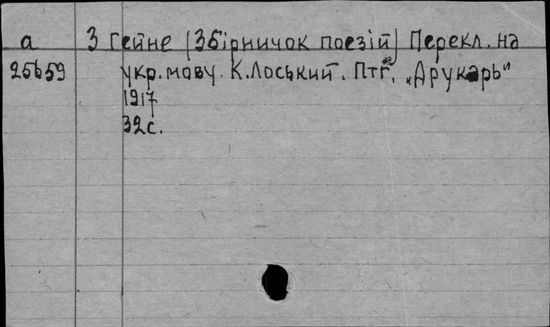 а З Гейне (Збірничок поезій) Перекл. на
25659 укр. мову. К. Лоський. Птг. „Друкарь"
1917
32с.